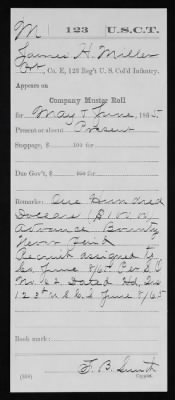 M 123 U.S.C.T.
James H. Miller
Pvt, Co. E, 123 Reg't U. S. Col'd Infantry.
Appears on
Company Muster Roll
for May & June, 1865.
Present or absent Present
Stoppage, $ 100 for
Due Gov't, $ 100 for
Remarks: One Hundred
Dollars ($100.00)
Advance Bounty
Never Paid
Recruit assigned to
Co. June 8/65 Per S.O.
No. 62 Dated Hd. Qrs
123rd U.S.C.I. June 8/65
Book mark:
F. B. Smith
(358) Copyist.